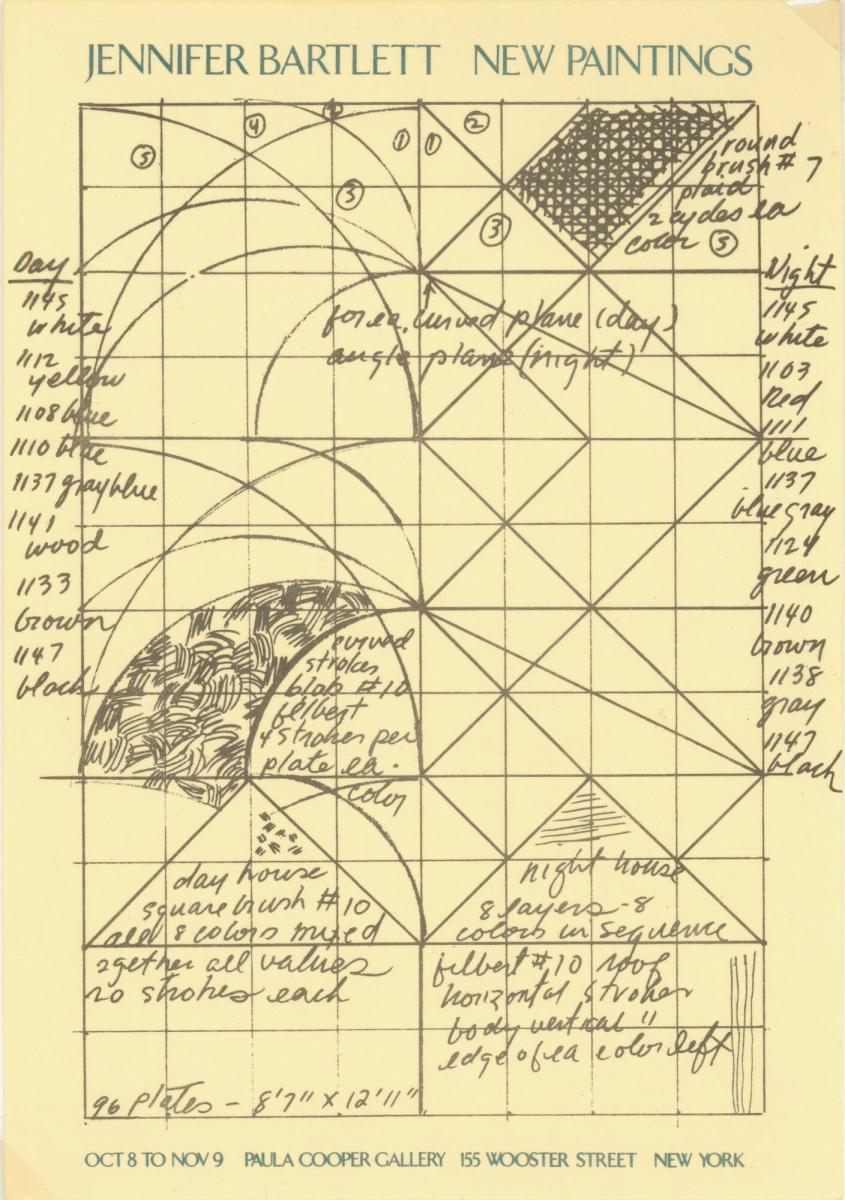 JENNIFER BARTLETT NEW PAINTINGS
5
4
2
1
1
2
3
3
round
brush # 7
plaid
2 cycles ea
color 5
Day
1145
white
1112
yellow
1108 blue
1110 blue
1137 grayblue
1141
wood
1133
brown
1147
black
for ea. curved plane (day)
angle plane (night)
Night
1145
white
1103
Red
1111
blue
1137
blue gray
1124
green
1140
brown
1138
gray
1147
black
curved
strokes
blab #10
filbert
4 strokes per
plate ea.
color
day house
square brush #10
all 8 colors mixed
2gether all values
20 strokes each
night house
8 layers - 8
colors in sequence
filbert #10 roof
horizontal strokes
body vertical "
edge of ea color left
96 plates - 8'7" X 12'11"
OCT 8 TO NOV 9 PAULA COOPER GALLERY 155 WOOSTER STREET NEW YORK